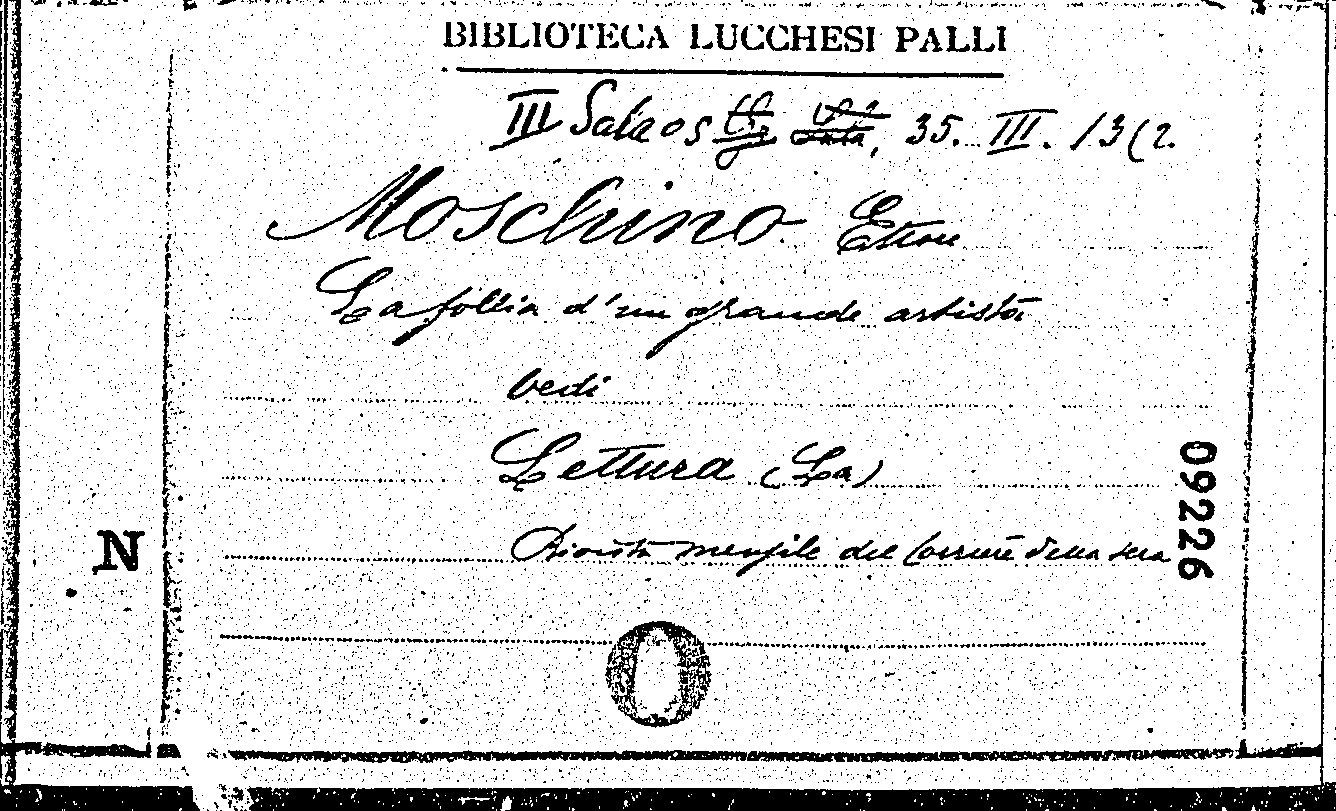 BIBLIOTECA LUCCHESI PALLI
III Sala 35. III. 13(2.
Moschino Ettore
La follia d'un grande artista
vedi
Lettura (La)
Rivista mensile del Corriere della sera
09226
N